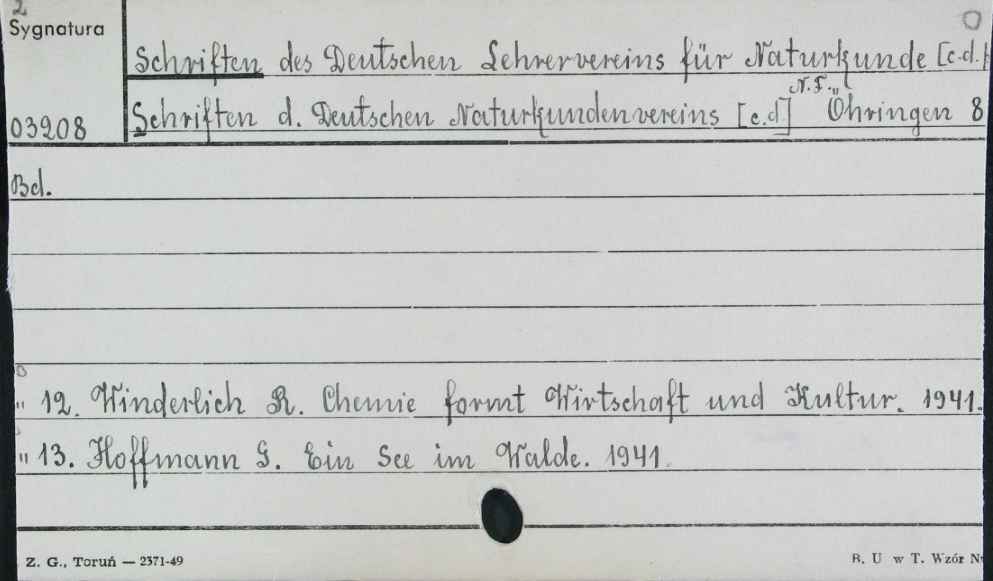 2
Sygnatura
Schriften des Deutschen Lehrervereins für Naturkunde [c.d.]
N.F.
03208 Schriften d. Deutschen Naturkundenvereins [c.d] Öhringen 8
Bd.
" 12. Winderlich R. Chemie formt Wirtschaft und Kultur. 1941.
" 13. Hoffmann G. Ein See im Walde. 1941.
Z. G., Toruń — 2371-49
B. U w T. Wzór N